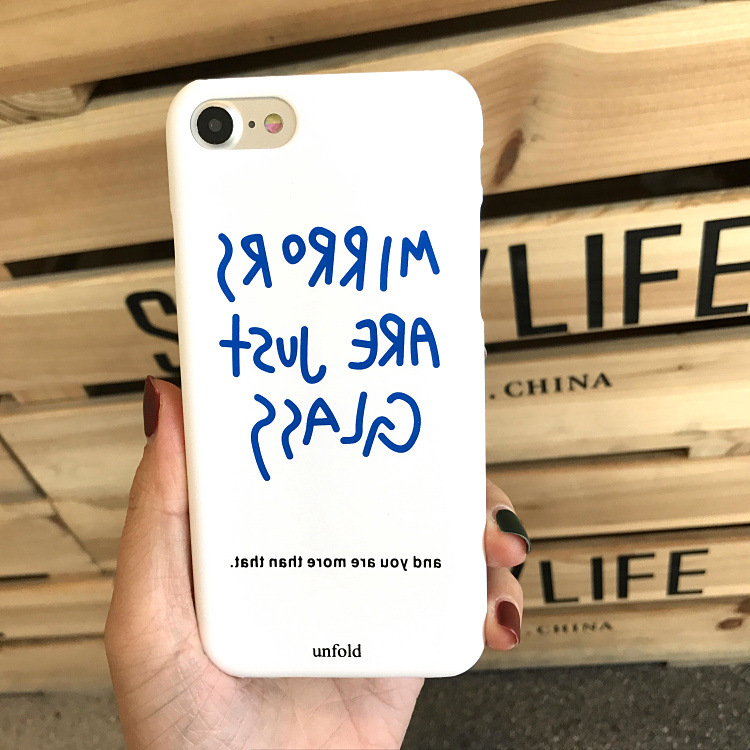 MIRRORS
ARE JUST
GLASS
and you are more than that.
unfold
LIFE
. CHINA
LIFE
. CHINA